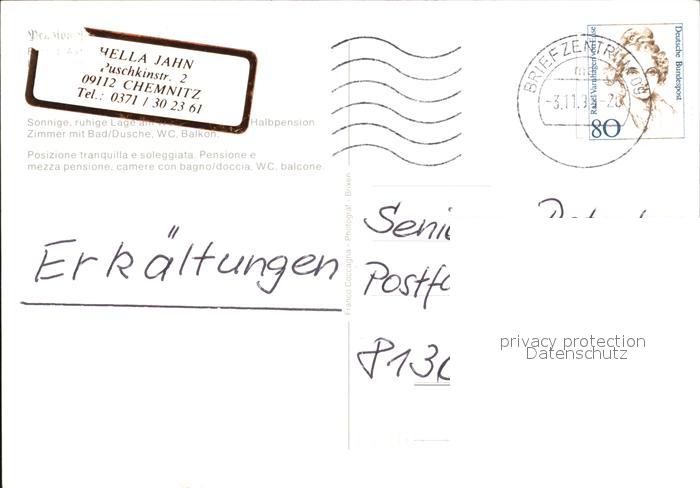 HELLA JAHN
Puschkinstr. 2
09112 CHEMNITZ
Tel.: 0371 / 30 23 61
Sonnige, ruhige Lage Halbpension
Zimmer mit Bad/Dusche, WC, Balkon.
Posizione tranquilla e soleggiata. Pensione e
mezza pensione, camere con bagno/doccia, WC, balcone.
Erkältungen
Franco Coccagna - Photograf. - Brixen
BRIEFZENTRUM 09
-3.11.9
Deutsche Bundespost
Rahel Varnhagen von Ense
80
Seni
Postf
813
privacy protection
Datenschutz